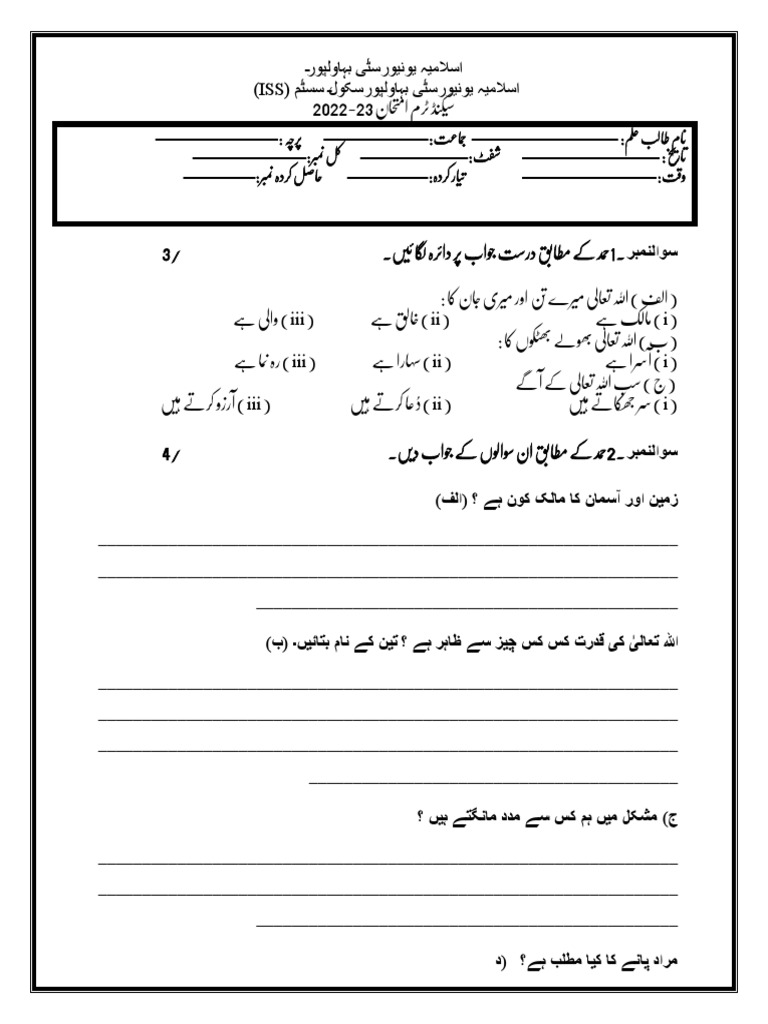 اسلامیہ یونیورسٹی بہاولپور۔
اسلامیہ یونیورسٹی بہاولپور سکول سسٹم (ISS)
سیکنڈ ٹرم امتحان 23-2022
نام طالب علم: ـــــــــــــــــــــ جماعت: ـــــــــــــــــــــ پرچہ: ـــــــــــــــــــــ
تاریخ: ـــــــــــــــــــــ شفٹ: ـــــــــــــــــــــ کل نمبر: ـــــــــــــــــــــ
وقت: ـــــــــــــــــــــ تیار کردہ: ـــــــــــــــــــــ حاصل کردہ نمبر: ـــــــــــــــــــــ
سوالنمبر ۔1 حمد کے مطابق درست جواب پر دائرہ لگائیں۔ /3
(الف) اللہ تعالی میرے تن اور میری جان کا:
(i) مالک ہے (ii) خالق ہے (iii) والی ہے
(ب) اللہ تعالی بھولے بھٹکوں کا:
(i) آسرا ہے (ii) سہارا ہے (iii) رہ نما ہے
(ج) سب اللہ تعالی کے آگے
(i) سر جھکاتے ہیں (ii) دُعا کرتے ہیں (iii) آرزو کرتے ہیں
سوالنمبر ۔2 حمد کے مطابق ان سوالوں کے جواب دیں۔ /4
زمین اور آسمان کا مالک کون ہے ؟ (الف)
اللہ تعالیٰ کی قدرت کس کس چیز سے ظاہر ہے ؟ تین کے نام بتائیں. (ب)
ج) مشکل میں ہم کس سے مدد مانگتے ہیں ؟
مراد پانے کا کیا مطلب ہے؟ (د